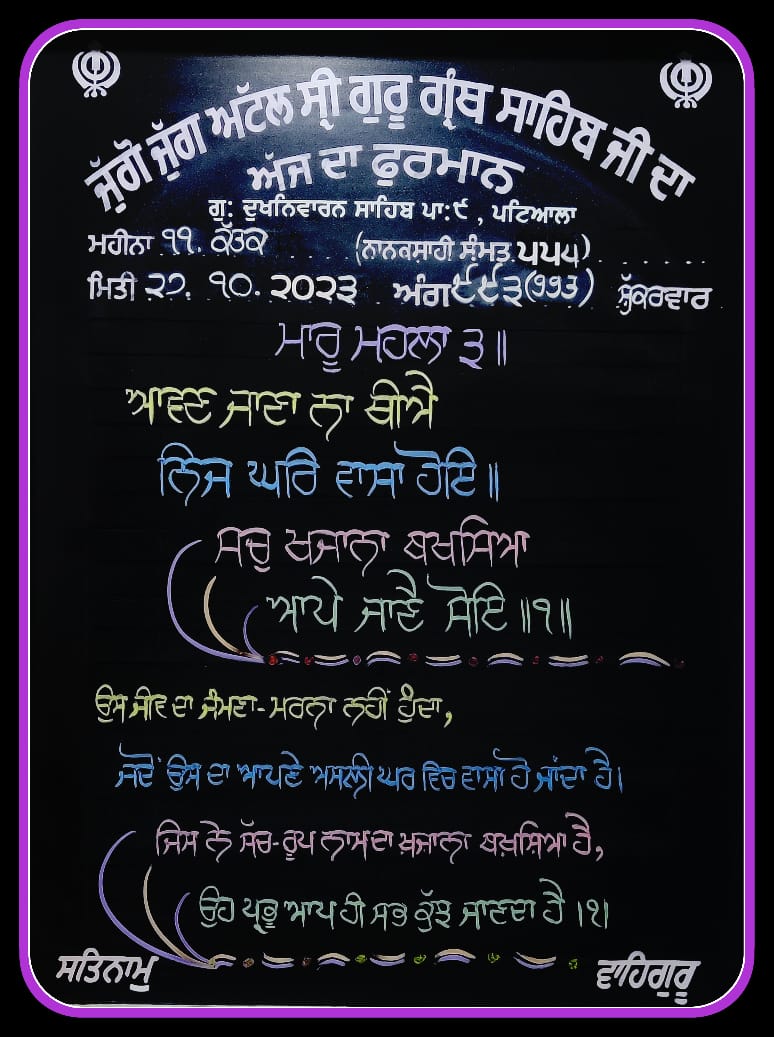 ਜੁੱਗੋ ਜੁੱਗ ਅਟੱਲ ਸ੍ਰੀ ਗੁਰੂ ਗ੍ਰੰਥ ਸਾਹਿਬ ਜੀ ਦਾ
ਅੱਜ ਦਾ ਫੁਰਮਾਨ
ਗੁ: ਦੁਖਨਿਵਾਰਨ ਸਾਹਿਬ ਪਾ:੯ , ਪਟਿਆਲਾ
ਮਹੀਨਾ ੧੧. ਕੱਤਕ (ਨਾਨਕਸ਼ਾਹੀ ਸੰਮਤ ੫੫੫)
ਮਿਤੀ ੨੭. ੧੦. ੨੦੨੩ ਅੰਗ ੯੯੩(993) ਸ਼ੁੱਕਰਵਾਰ
ਮਾਰੂ ਮਹਲਾ ੩॥
ਆਵਣ ਜਾਣਾ ਨਾ ਥੀਐ
ਨਿਜ ਘਰਿ ਵਾਸਾ ਹੋਇ॥
ਸਚੁ ਖਜਾਨਾ ਬਖਸਿਆ
ਆਪੇ ਜਾਣੈ ਸੋਇ॥੧॥
ਉਸ ਜੀਵ ਦਾ ਜੰਮਣਾ-ਮਰਨਾ ਨਹੀਂ ਹੁੰਦਾ,
ਜਦੋਂ ਉਸ ਦਾ ਆਪਣੇ ਅਸਲੀ ਘਰ ਵਿਚ ਵਾਸਾ ਹੋ ਜਾਂਦਾ ਹੈ।
ਜਿਸ ਨੇ ਸੱਚ-ਰੂਪ ਨਾਮ ਦਾ ਖ਼ਜ਼ਾਨਾ ਬਖ਼ਸ਼ਿਆ ਹੈ,
ਉਹ ਪ੍ਰਭੂ ਆਪ ਹੀ ਸਭ ਕੁੱਝ ਜਾਣਦਾ ਹੈ।੧।
ਸਤਿਨਾਮੁ ਵਾਹਿਗੁਰੂ